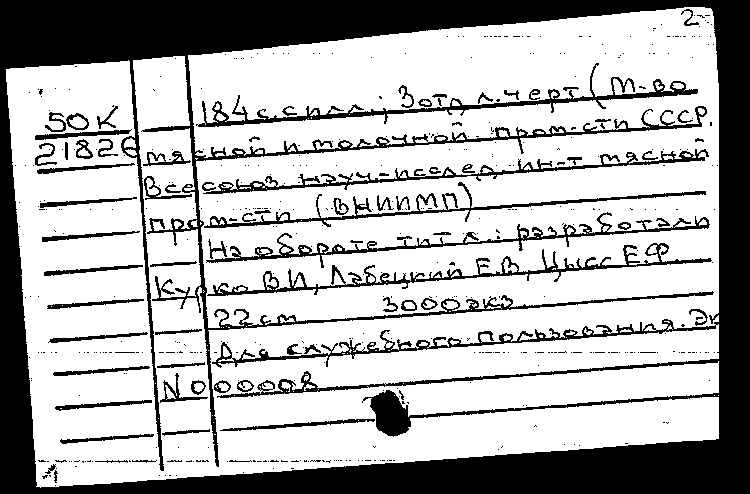 2
50К
21826
184 с. с илл.; 3 отд. л. черт (М-во
мясной и молочной пром-сти СССР.
Всесоюз. науч.-исслед. ин-т мясной
пром-сти (ВНИИМП)
На обороте тит л.: разработали
Курко В.И., Лабецкий Е.В., Цысс Е.Ф.
22 см 3000 экз.
Для служебного пользования. Эк
N 000008
1